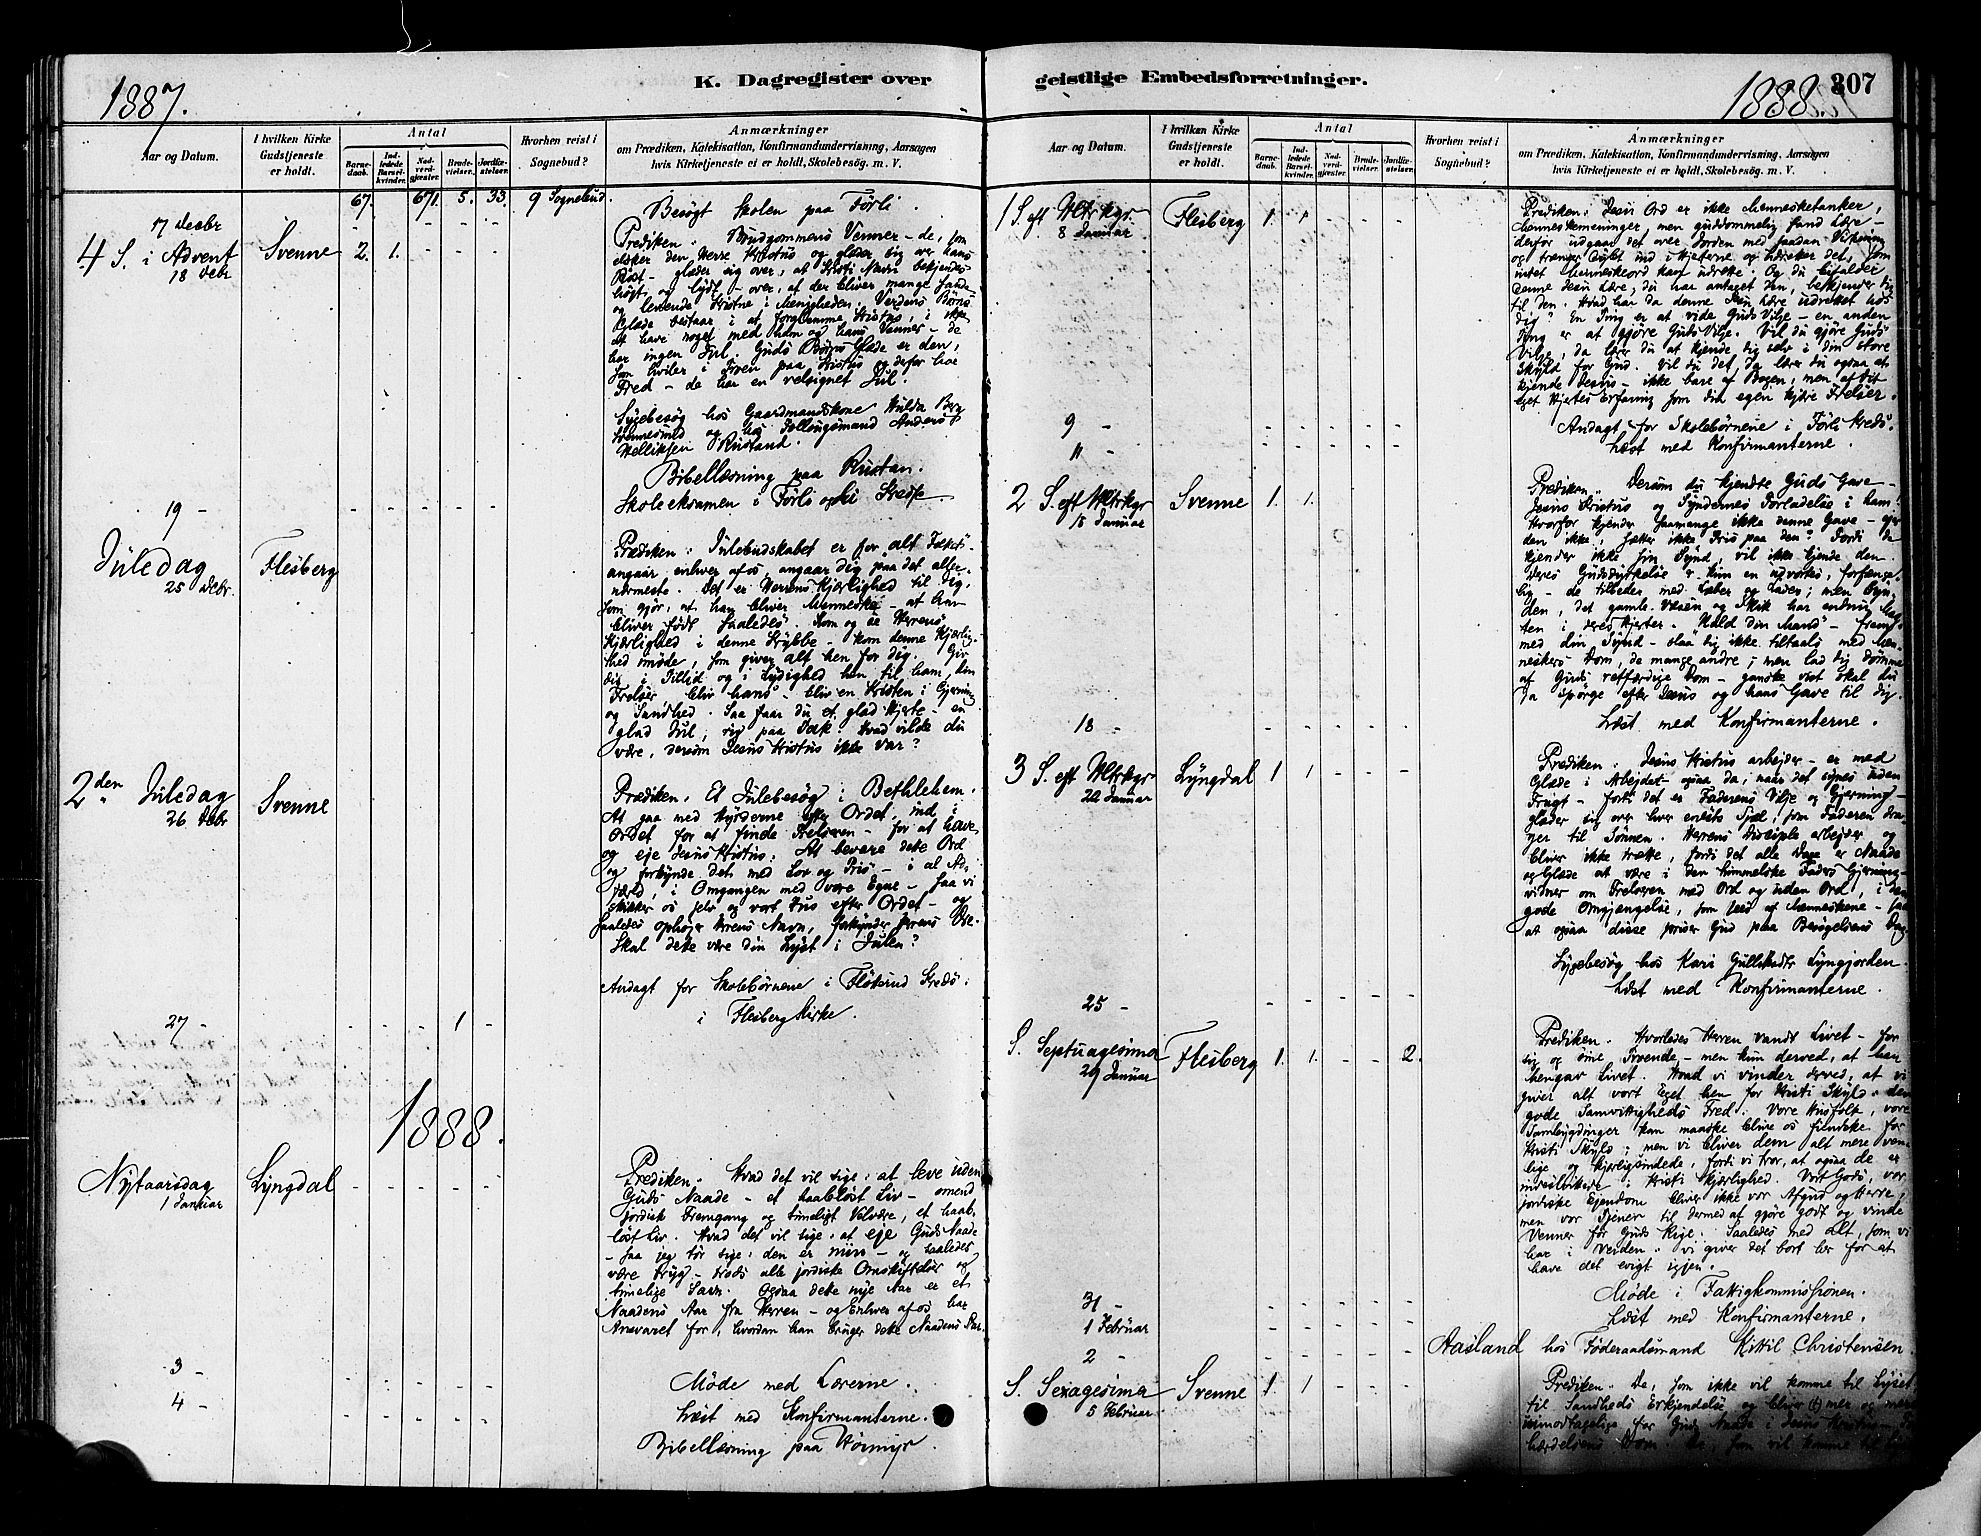 1887.
K. Dagregister over
Aar og Datum.
I hvilken Kirke
Gudstjeneste
er holdt.
Antal
Barne-
daab.
Ind-
ledede
Barsel-
kvinder.
Nad-
verd-
gjæster.
Brude-
vielser.
Jordfæ-
stelser.
Hvorhen reist i
Sognebud?
Anmærkninger
om Prædiken, Katekisation, Konfirmandundervisning, Aarsagen
hvis Kirketjeneste ei er holdt, Skolebesög. m. V.
67. 671. 5. 33. 9 Sognebud.
17 Decbr Besøgt Skolen paa Førli.
4 S. i Advent Svenne 2. 1.
18 Debr
Prediken. Brudgommens Venner – de, som
elsker den Herre Kristus og glæder sig over hans
Røst – glæder sig over, at Kristi Navn bekjendes
høgt og lydt – over, at der bliver mange sande
og levende Kristne i Menigheden. Verdens Børns
Glæde bestaar i at forglemme Kristus, i ikke
at have noget med ham og hans Venner – de
har ingen Jul. Guds Børns Glæde er den,
som hviler i Troen paa Kristus og derfor har
Fred – de har en velsignet Jul.
Sygebesøg hos Gaardmandskone Hulda Berg
Svennesmed og hos Sollungsmand Anders
Helliksen Rustand.
Bibellæsning paa Rustan.
19 – Skoleeksamen i Førli
Juledag Flesberg
25 Debr.
Prædiken: Julebudskabet er for alt Folket
angaar enhver af os, angaar dig paa det aller-
nærmeste. Det er Herrens Kjærlighed til dig,
som gjør, at han bliver Menneske – at han
bliver født saaledes. Kom og se Herrens
Kjærlighed i denne Krybbe – kom denne Kjærlig-
hed imøde, som giver alt hen for dig. Giv
dig i Tillid og i Lydighed hen til ham, din
Frelser – bliv hans – bliv en Kristen i Gjerning
og Sandhed. Saa faar du et glad Hjerte – en
glad Jul, rig paa Tak. Hvad vilde du
være, dersom Jesus Kristus ikke var?
2den Juledag Svenne
26 Debr
Prædiken. Et Julebesøg i Bethlehem.
At gaa med Hyrderne efter Ordet, ind i
Ordet for at finde Frelseren – for at have
og eje Jesus Kristus. At bevare dette Ord
og forkynde det med Lov og Pris – i al Ad-
færd, i Omgangen med vore Egne – saa vi
skikker os selv og vort Hus efter Ordet – og
saaledes ophøjer Herrens Navn, forkynder Herrens Ære.
Skal dette være din Lyst i Julen?
Andagt for Skolebørnene i Flåtsrud Kreds.
27 – 1 i Flesberg Kirke.
1888.
Nytaarsdag Lyngdal
1 Januar
Prediken. Hvad det vil sige: at leve uden
Guds Naade – et haabløst Liv – omend
jordisk Fremgang og timeligt Velvære, et haab-
løst Liv. Hvad det vil sige: at eje Guds Naade
– saa jeg tør sige: den er min – og saaledes
være tryg – trods alle jordiske Omskiftelser og
timelige Savn. Ogsaa dette nye Aar er et
Naadens Aar fra Herren – og Enhver af os har
Ansvaret for, hvordan han bruger dette Naadens Aar.
3 – Møde med Lærerne.
4 – Læst med Konfirmanterne.
Bibellæsning paa
geistlige Embedsforretninger.
1888
307
Aar og Datum.
I hvilken Kirke
Gudstjeneste
er holdt.
Antal
Barne-
daab.
Ind-
ledede
Barsel-
kvinder.
Nad-
verd-
gjæster.
Brude-
vielser.
Jordfæ-
stelser.
Hvorhen reist i
Sognebud?
Anmærkninger
om Prædiken, Katekisation, Konfirmandundervisning, Aarsagen
hvis Kirketjeneste ei er holdt, Skolebesög. m. V.
1 S. eft Hltrkgr Flesberg 1. 1
8 Januar
Prediken: Jesu Ord er ikke Mennesketanker,
Menneskemeninger, men guddommelig sand Lære –
derfor udgaar det over Jorden med saadan Virkning
og trænger dybt ind i Hjerterne og udretter det, som
intet Menneskeord kan udrette. Og du bifalder
denne Jesu Lære; du har antaget den, bekjender dig
til den. Hvad har da denne Jesu Lære udrettet hos
dig? En Ting er at vide Guds Vilje – en anden
Ting er at gjøre Guds Vilje. Vil du gjøre Guds
Vilje, da lærer du at kjende dig selv i din store
Skyld for Gud. Vil du det, da lærer du ogsaa at
kjende Jesus – ikke bare af Bogen, men af dit
eget Hjertes Erfaring som din egen kjære Frelser.
9 – Andagt for Skolebørnene i Førli Kreds.
11 – Læst med Konfirmanterne.
2 S. eft Hltrkgr Svenne 1. 1.
15 Januar
Prediken. Dersom du kjendte Guds Gave –
Jesus Kristus og Syndernes Forladelse i ham!
Hvorfor kjender saamange ikke denne Gave – ejer
den ikke, sætter ikke Pris paa den? Fordi de
kjender ikke sin Synd, vil ikke kjende den –
deres Gudsdyrkelse er kun en udvortes, forfænge-
lig – de tilbeder med Læber og Lader; men Syn-
den, det gamle Væsen og Skik har endnu Mag-
ten i deres Hjerter. "Kald din Mand" – frem
med din Synd – slaa dig ikke tiltaals med Men-
neskers Dom, de mange andre; men lad dig dømme
af Guds retfærdige Dom – ganske vist skal du
da spørge efter Jesus og hans Gave til dig.
18 – Læst med Konfirmanterne.
3 S. eft Hltrkgr Lyngdal 1 1
22 Januar
Prediken. Jesus Kristus arbejder – er med
Glæde i Arbejdet – ogsaa da, naar det synes uden
Frugt – fordi det er Faderens Vilje og Gjerning –
glæder sig over hver eneste Sjæl, som Faderen dra-
ger til Sønnen. Herrens Disciple arbejder og
bliver ikke trætte, fordi det alle Dage er Naade
og Glæde at være i den himmelske Faders Gjerning –
vidner om Frelseren med Ord og uden Ord, i den
gode Omgjængelse, som sees af Menneskene – saa
at ogsaa disse priser Gud paa Besøgelsens Dag.
Sygebesøg hos Kari Gulliksdtr Lyngjorden.
25 – Læst med Konfirmanterne.
S. Septuagesima Flesberg 1. 1. 2.
29 Januar
Prediken. Hvorledes Herren vandt Livet – for
sig og sine Troende – men kun derved, at han
hengav Livet. Hvad vi vinder derved, at vi
giver alt vort Eget hen for Kristi Skyld: den
gode Samvittigheds Fred. Vore Husfolk, vore
Sambygdinger kan maaske blive os fiendske for
Kristi Skyld; men vi bliver dem alt mere ven-
lige og kjærligsindede, fordi vi tror, at ogsaa de er
indesluttede i Kristi Kjærlighed. Vort Gods, vor
jordiske Ejendom bliver ikke vor Afgud og Herre,
men vor Tjener til dermed at gjøre godt og vinde
Venner for Guds Rige. Saaledes med Alt, som vi
har i Verden: vi giver det bort her for at
have det evigt igjen.
31 – Møde i Fattigkommissionen.
1 Februar Læst med Konfirmanterne.
2 – Aasland hos Føderaadsmand Kittil Christensen.
S. Sexagesima Svenne 1. 1
5 Februar
Prediken. De, som ikke vil komme til Lyset
til Sandheds Erkjendelse og bliver mer og mere
umodtagelige for Guds Naade i Jesus Kristus
Dom. De, som vil komme til